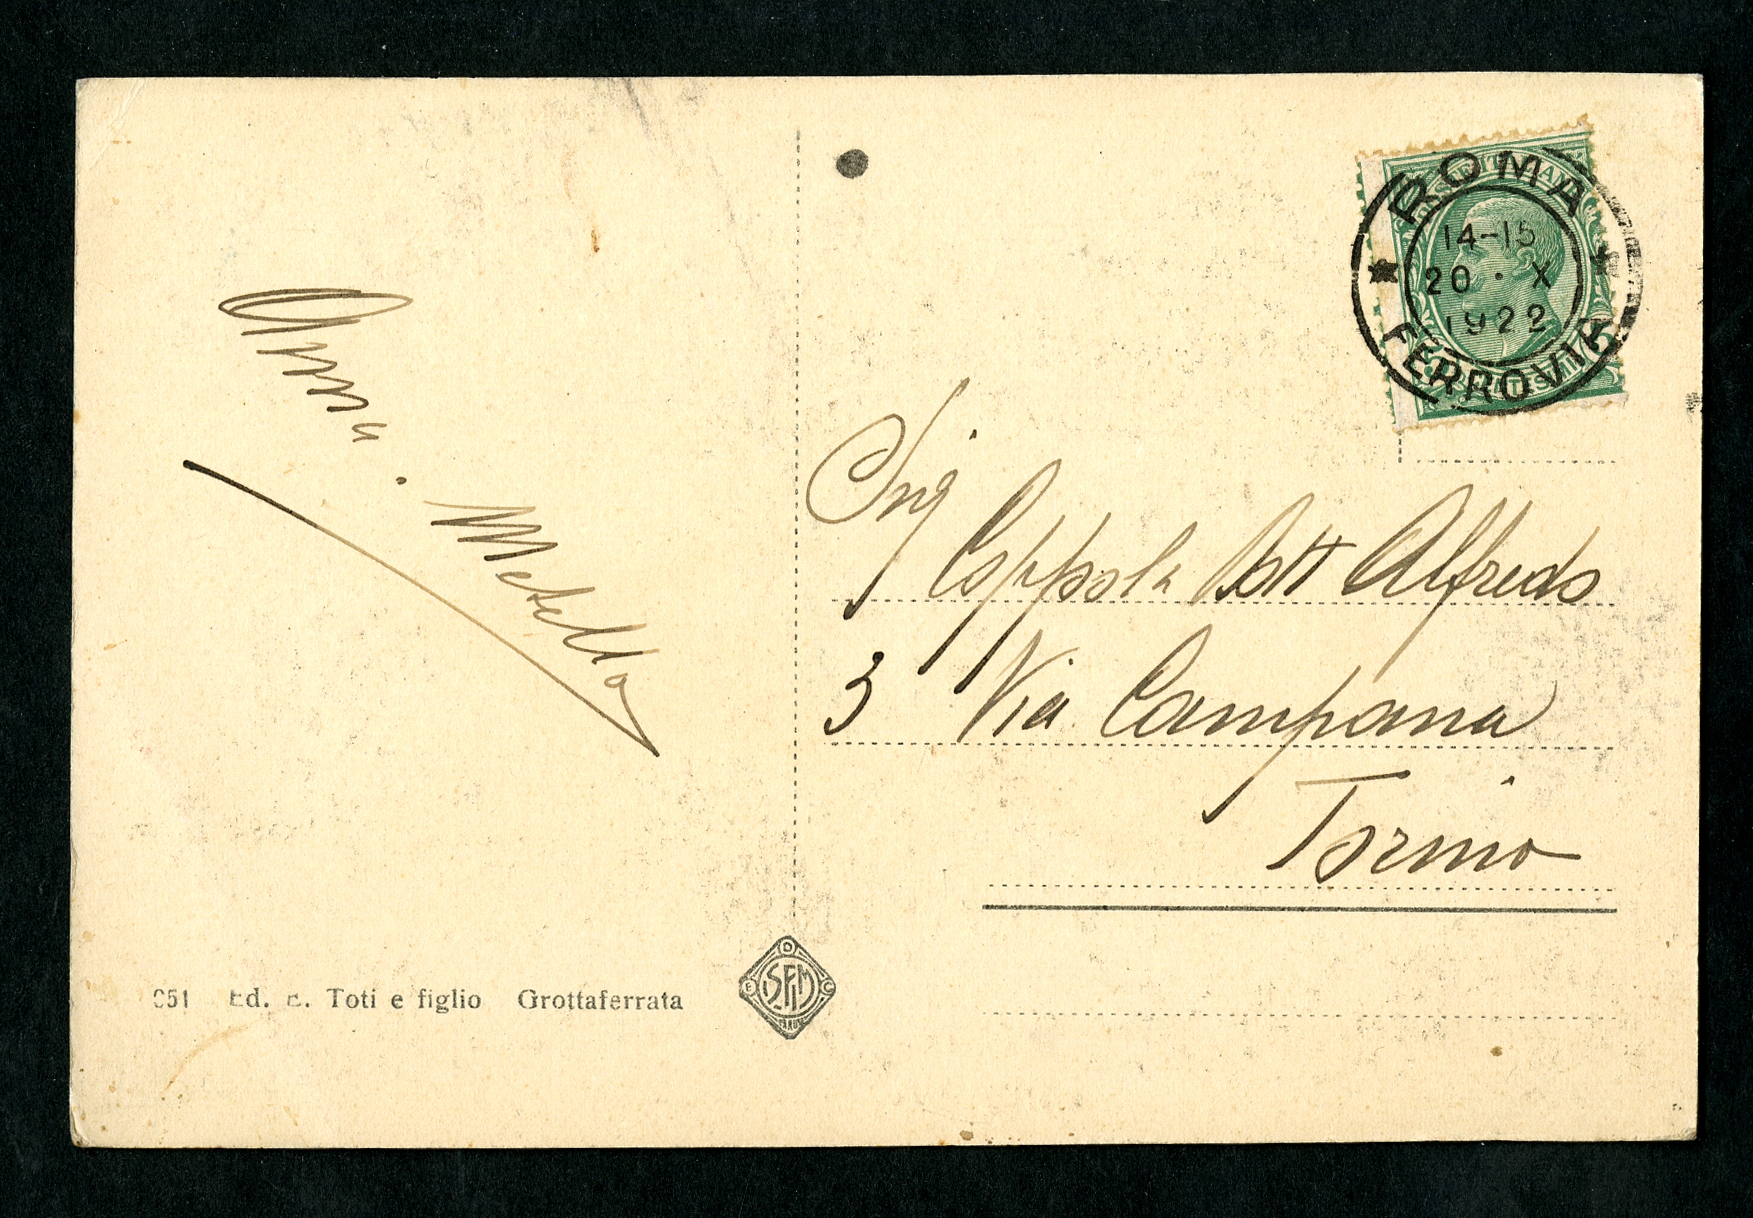 Anna. Metello
ROMA
14-15
20 · X
1922
FERROVIA
Ing
Coppola Dott Alfredo
3 Via Campana
Torino
Ed. E. Toti e figlio Grottaferrata